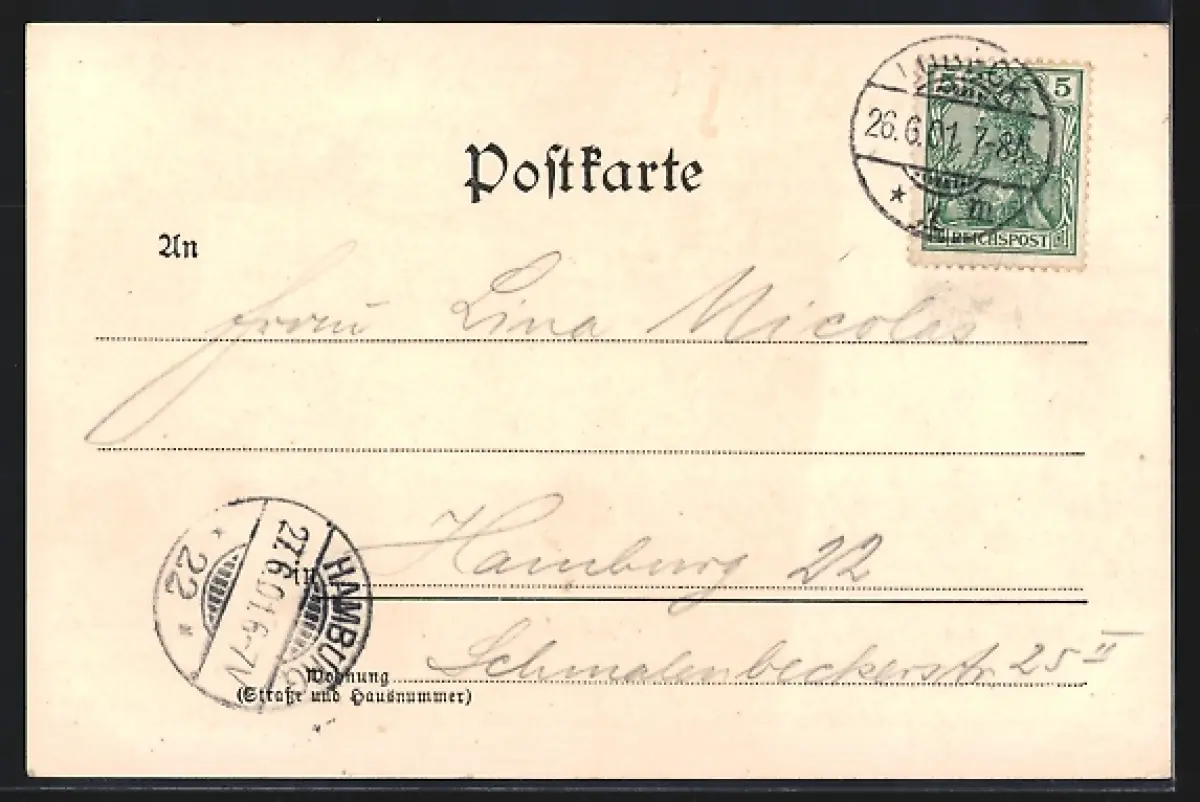 5 5
LÜBECK
26.6.01. 7-8N.
* m
REICHSPOST
Poſtkarte
An
Frau Lina Nicolas
in Hamburg 22
HAMBURG
27.6.01. 6-7V
* 22 *
Wohnung Schmalenbeckerstr 25 II
(Straße und Hausnummer)